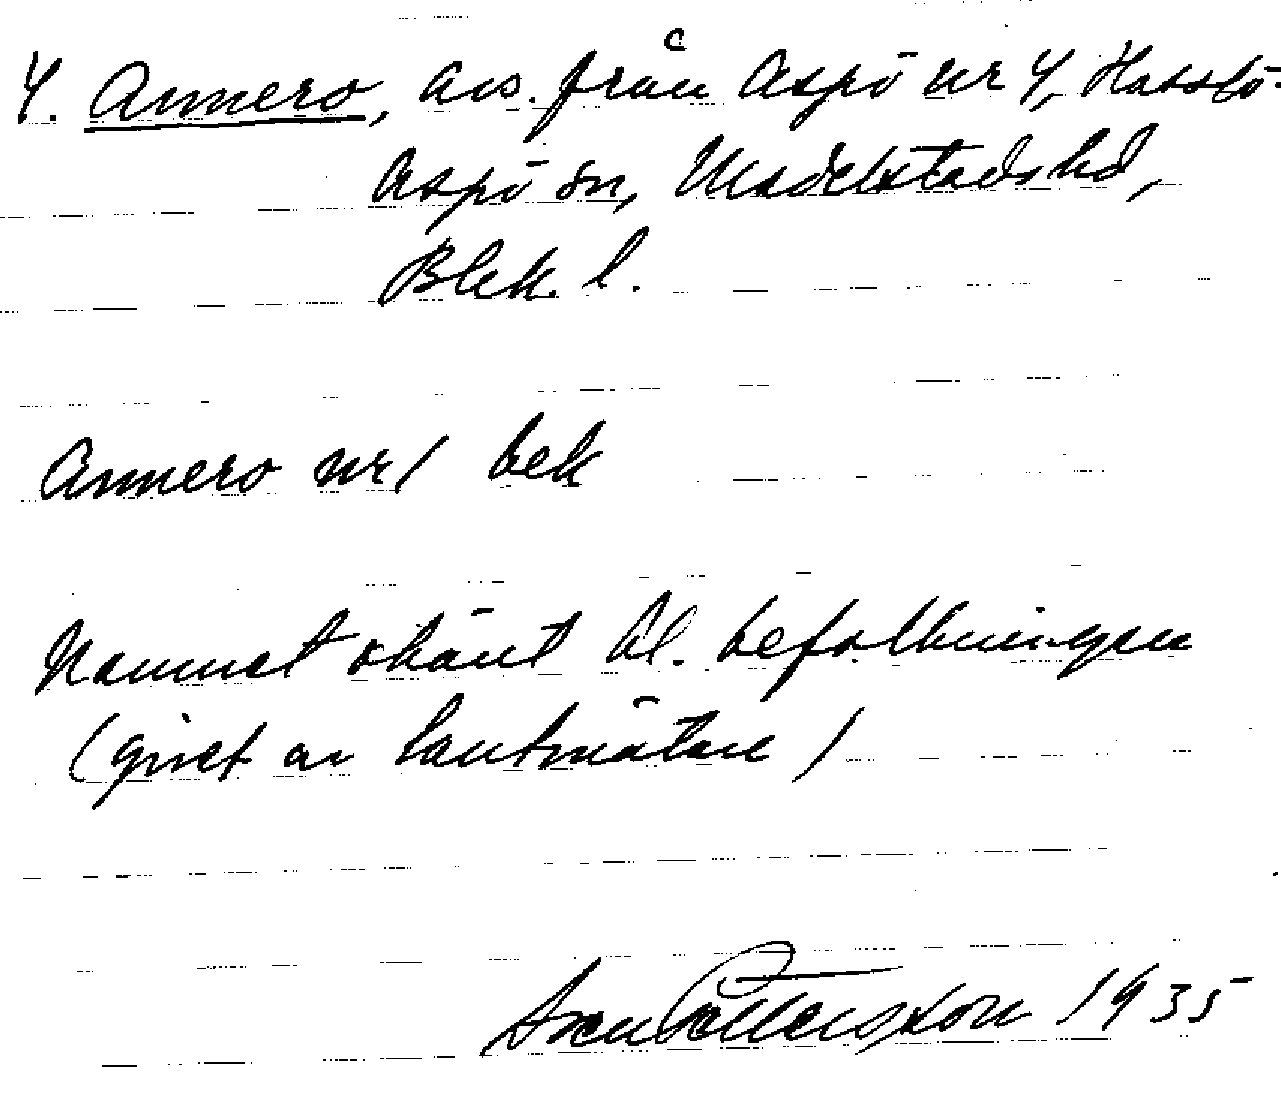 4. Annero, avs. från Aspö nr 4, Hasslö-
Aspö sn, Medelstads hd,
Blek. l.
Annero nr 1 bek
Namnet okänt bl. befolkningen
(givet av lantmätare)
Pettersson 1935